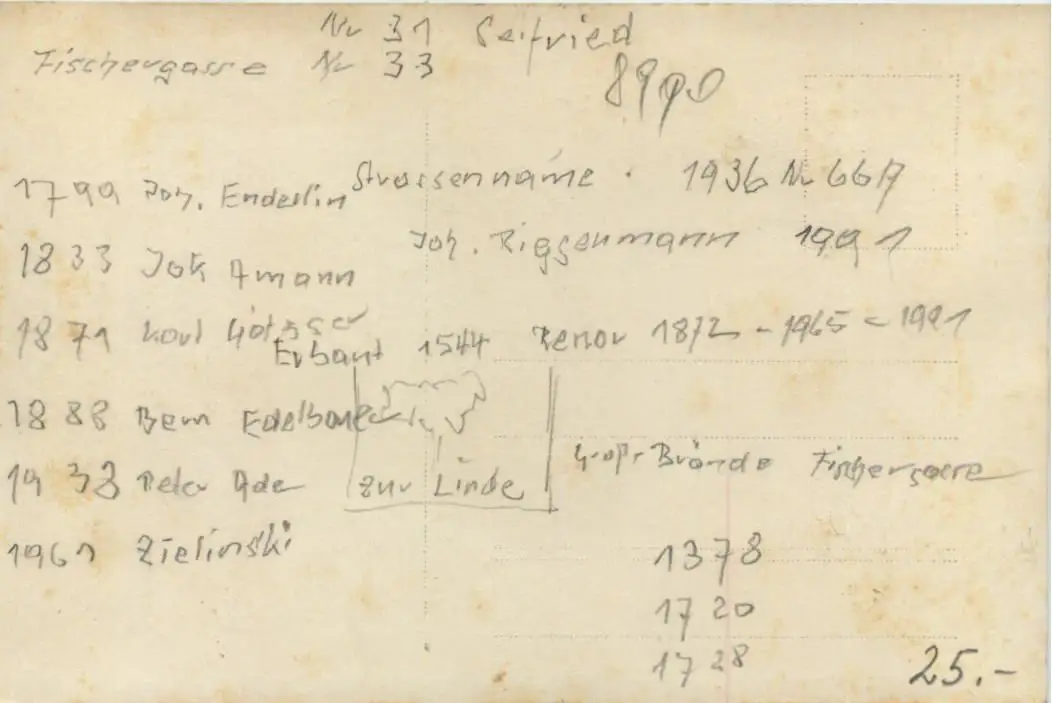 Nr 31 Seifried
Fischergasse Nr 33
8990
Strassenname . 1936 Nr 66
1799 Joh. Enderlin
Joh. Riggenmann 1991
1833 Jok Amann
1871 Karl
Erbaut 1544 Renov 1872 - 1965 - 1991
1888 Bern
1938 Peter Ade
zur Linde
Brände Fischergasse
1961 Zielinski
1378
1720
1728
25.-